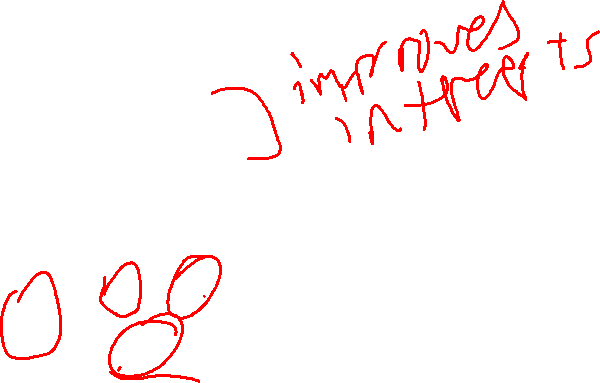 improves
intrerts